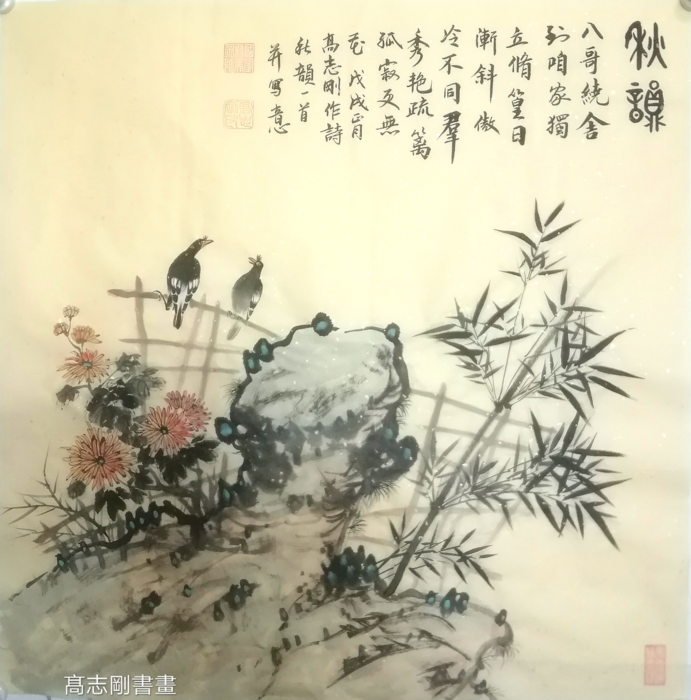 秋韻
八哥繞舍
到咱家獨
立脩篁日
漸斜傲
冷不同羣
秀艳疏篱
孤寂更無
花戊戌正月
高志刚作詩
秋韻一首
并寫意
髙志剛書畫